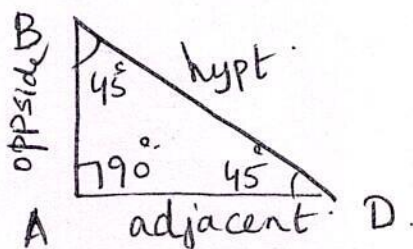 B
oppside
45°
hypt.
90°.
45°
A
adjacent.
D.